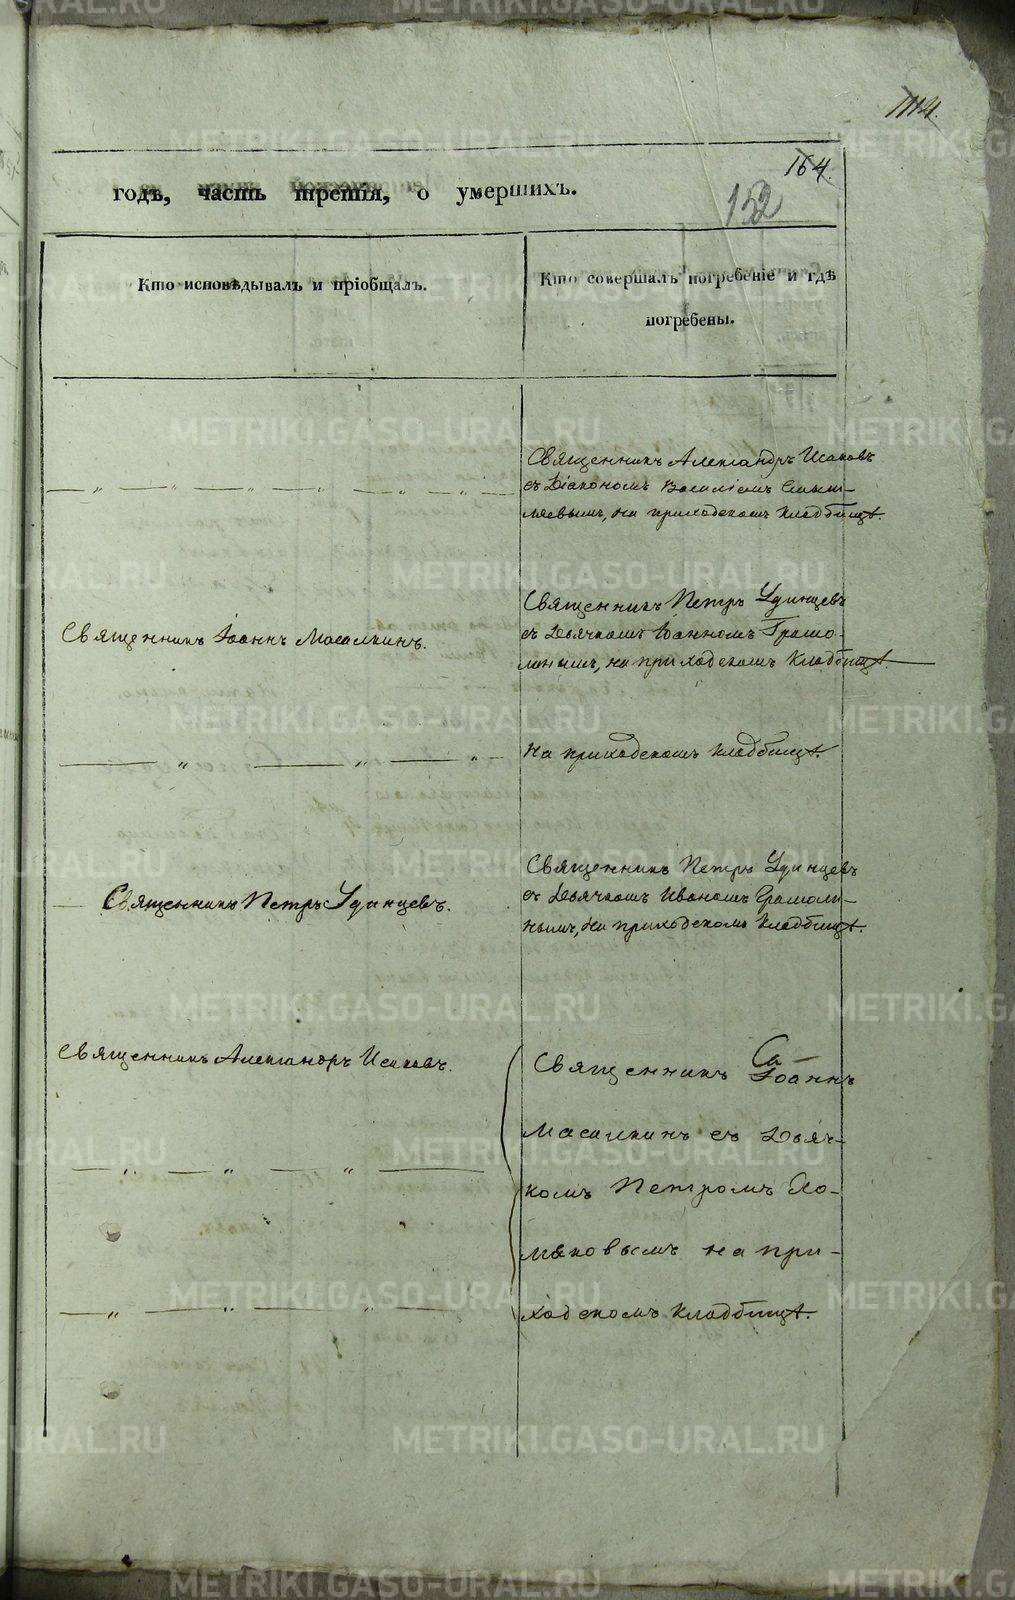 164.
годъ, часть третія, о умершихъ.
152
Кто исповѣдывалъ и пріобщалъ.
Кто совершалъ погребеніе и гдѣ
погребены.
Священникъ Александръ Исаковъ
съ Діакономъ Василіемъ
на приходскомъ кладбищѣ.
Священникъ Іоаннъ Масалкинъ.
Священникъ Петръ Удинцевъ
съ Дьячкомъ Іоанномъ Грамо-
линымъ, на приходскомъ кладбищѣ.
На приходскомъ кладбищѣ.
Священникъ Петръ Удинцевъ.
Священникъ Петръ Удинцевъ
съ Дьячкомъ Иваномъ Грамоли-
нымъ, на приходскомъ кладбищѣ.
Священникъ Александръ Исаковъ.
Священникъ Іоаннъ
Масалкинъ съ Дьяч-
комъ Петромъ Хо-
мяковымъ на при-
ходскомъ кладбищѣ.
METRIKI.GASO-URAL.RU